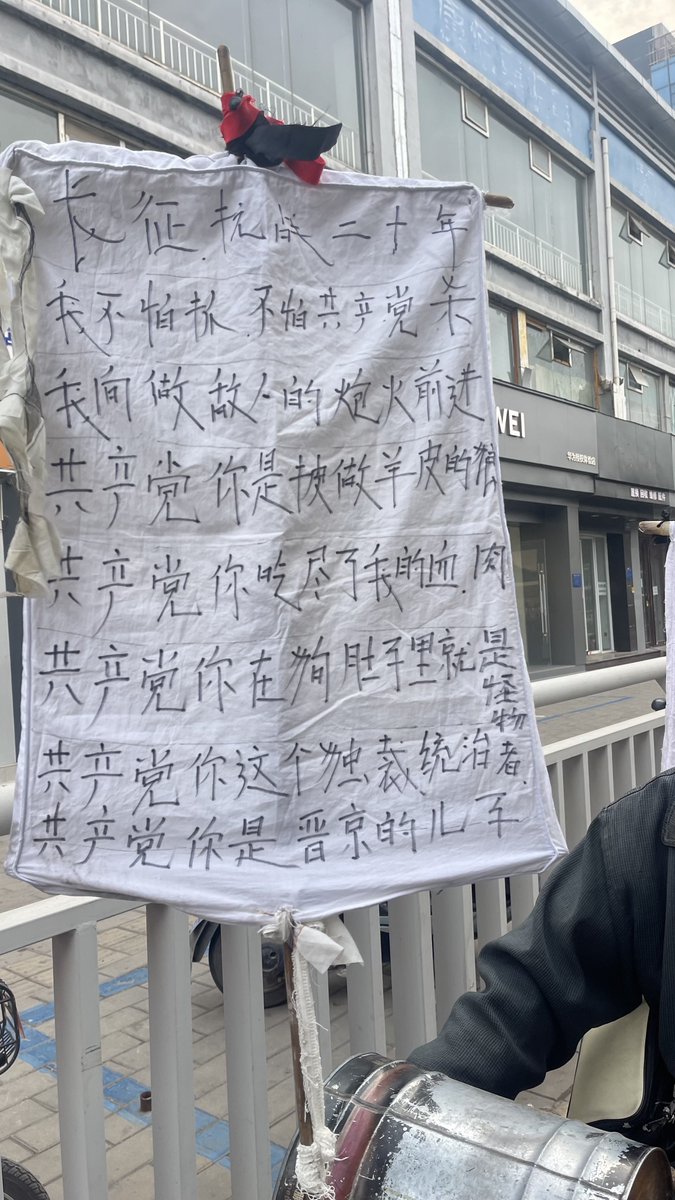 长征.抗战二十年
我不怕抓.不怕共产党杀
我向做敌人的炮火前进
共产党你是披做羊皮的狼
共产党你吃尽了我的血.肉
共产党你在狗肚子里就是怪物
共产党你这个独裁统治者.
共产党你是晋京的儿子
WEI